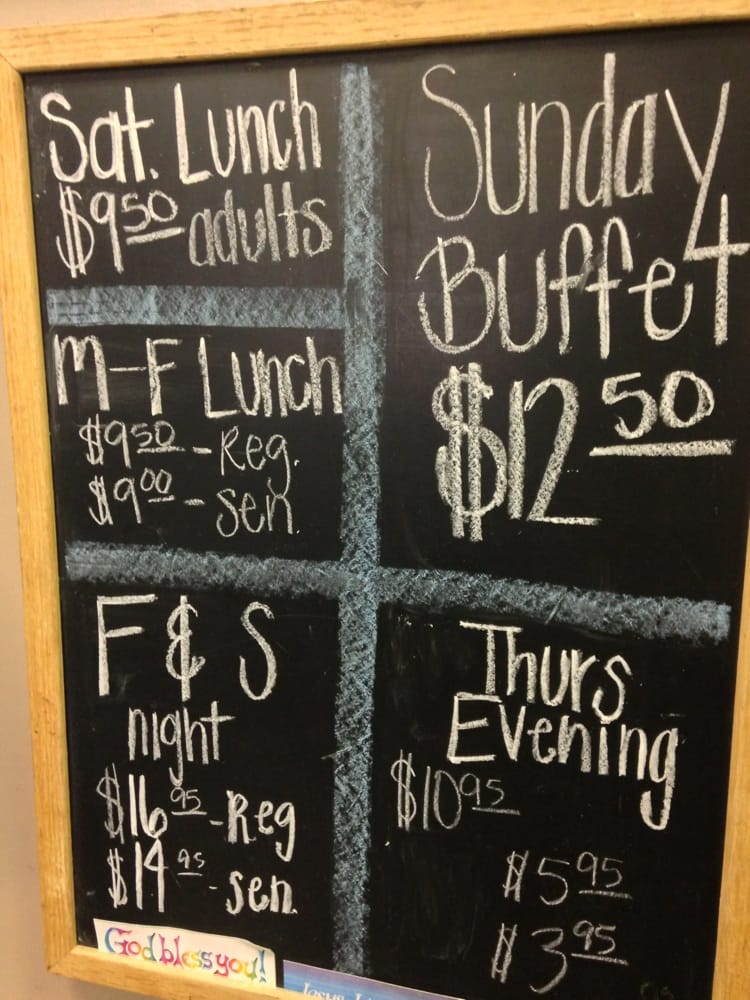 Sat. Lunch
$9.50 adults
M-F Lunch
$9.50 - Reg.
$9.00 - sen.
F & S
night
$16.95 - Reg
$14.95 - sen.
God bless you!
Sunday
Buffet
$12.50
Thurs
Evening
$10.95
$5.95
$3.95
Jesus